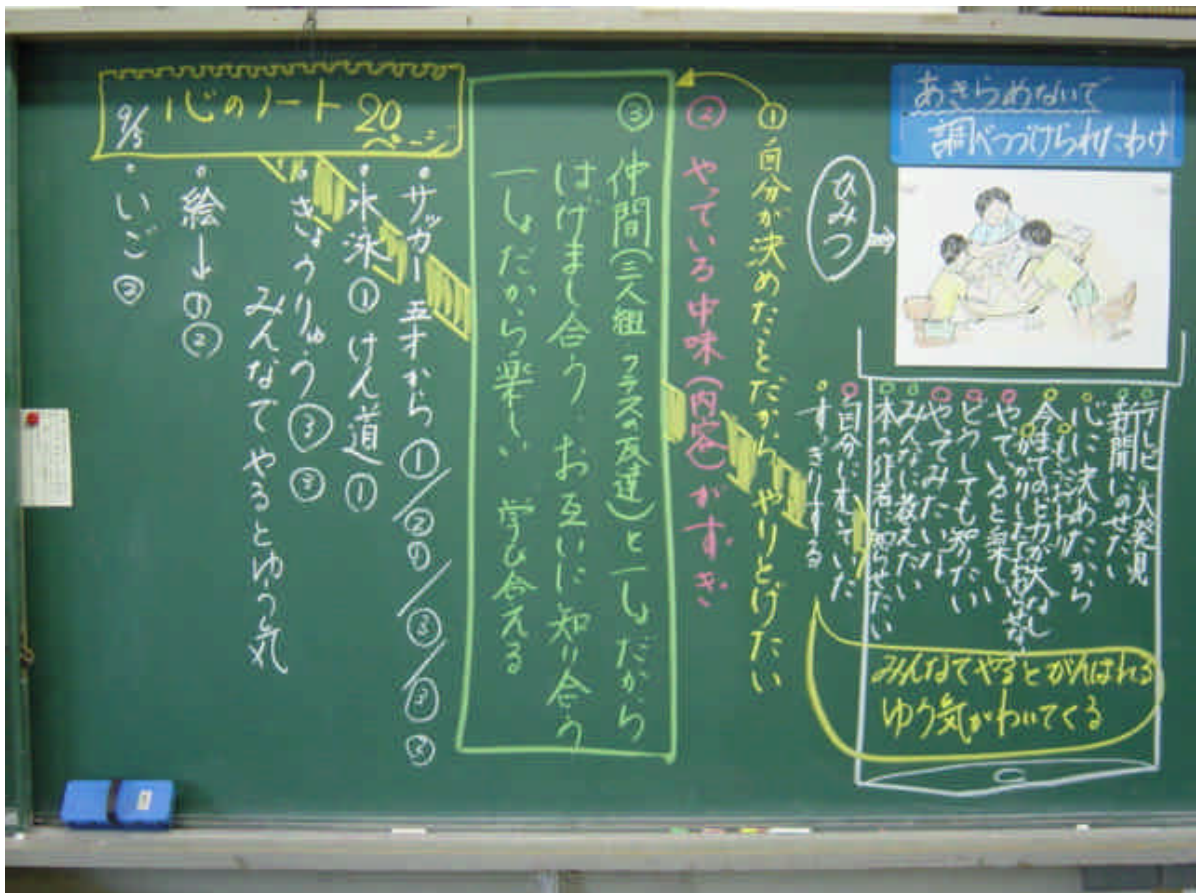 あきらめないで
調べつづけられたわけ
ひみつ
テレビ 大発見
新聞にのせたい
心に決めたから
今までのど力が大なし
やっていると楽し
どうしても知りたい
やってみたいな
みんなに教えたい
本の作者に知らせたい
自分にむいていた
すっきりする
みんなでやるとがんばれる
ゆう気がわいてくる
①自分が決めたことだから やりとげたい
② やっている中味(内容)がすき
③ 仲間(三人組 クラスの友達)と一しょだから
はげまし合う お互いに知り合う
一しょだから楽しい 学び合える
心のノート 20
ページ
9/5
・サッカー 五才から ①/②の/③/③ ③
・水泳① けん道①
・きょうりゅう③ ③
みんなでやるとゆう気
・絵→①②
・いご②